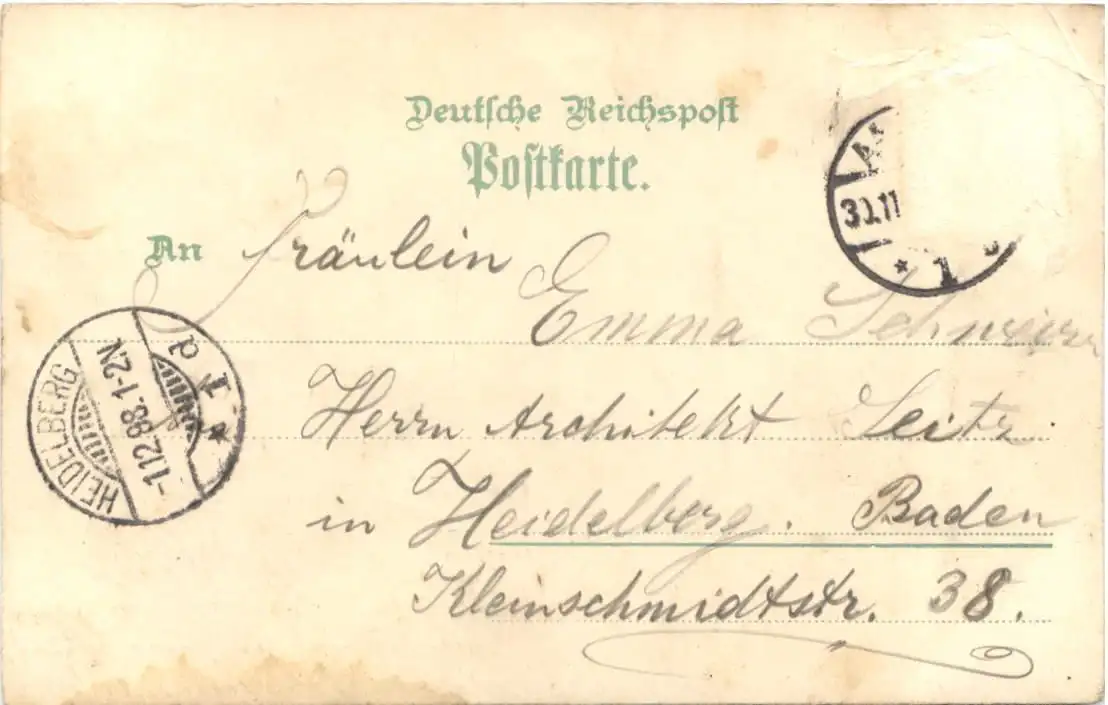 Deutsche Reichspost
Postkarte.
An Fräulein
Emma
Herrn Architekt Seitz
in Heidelberg. Baden
Kleinschmidtstr. 38.
30.11
* 1
HEIDELBERG
-1.12.98.1-2N
* 1 d